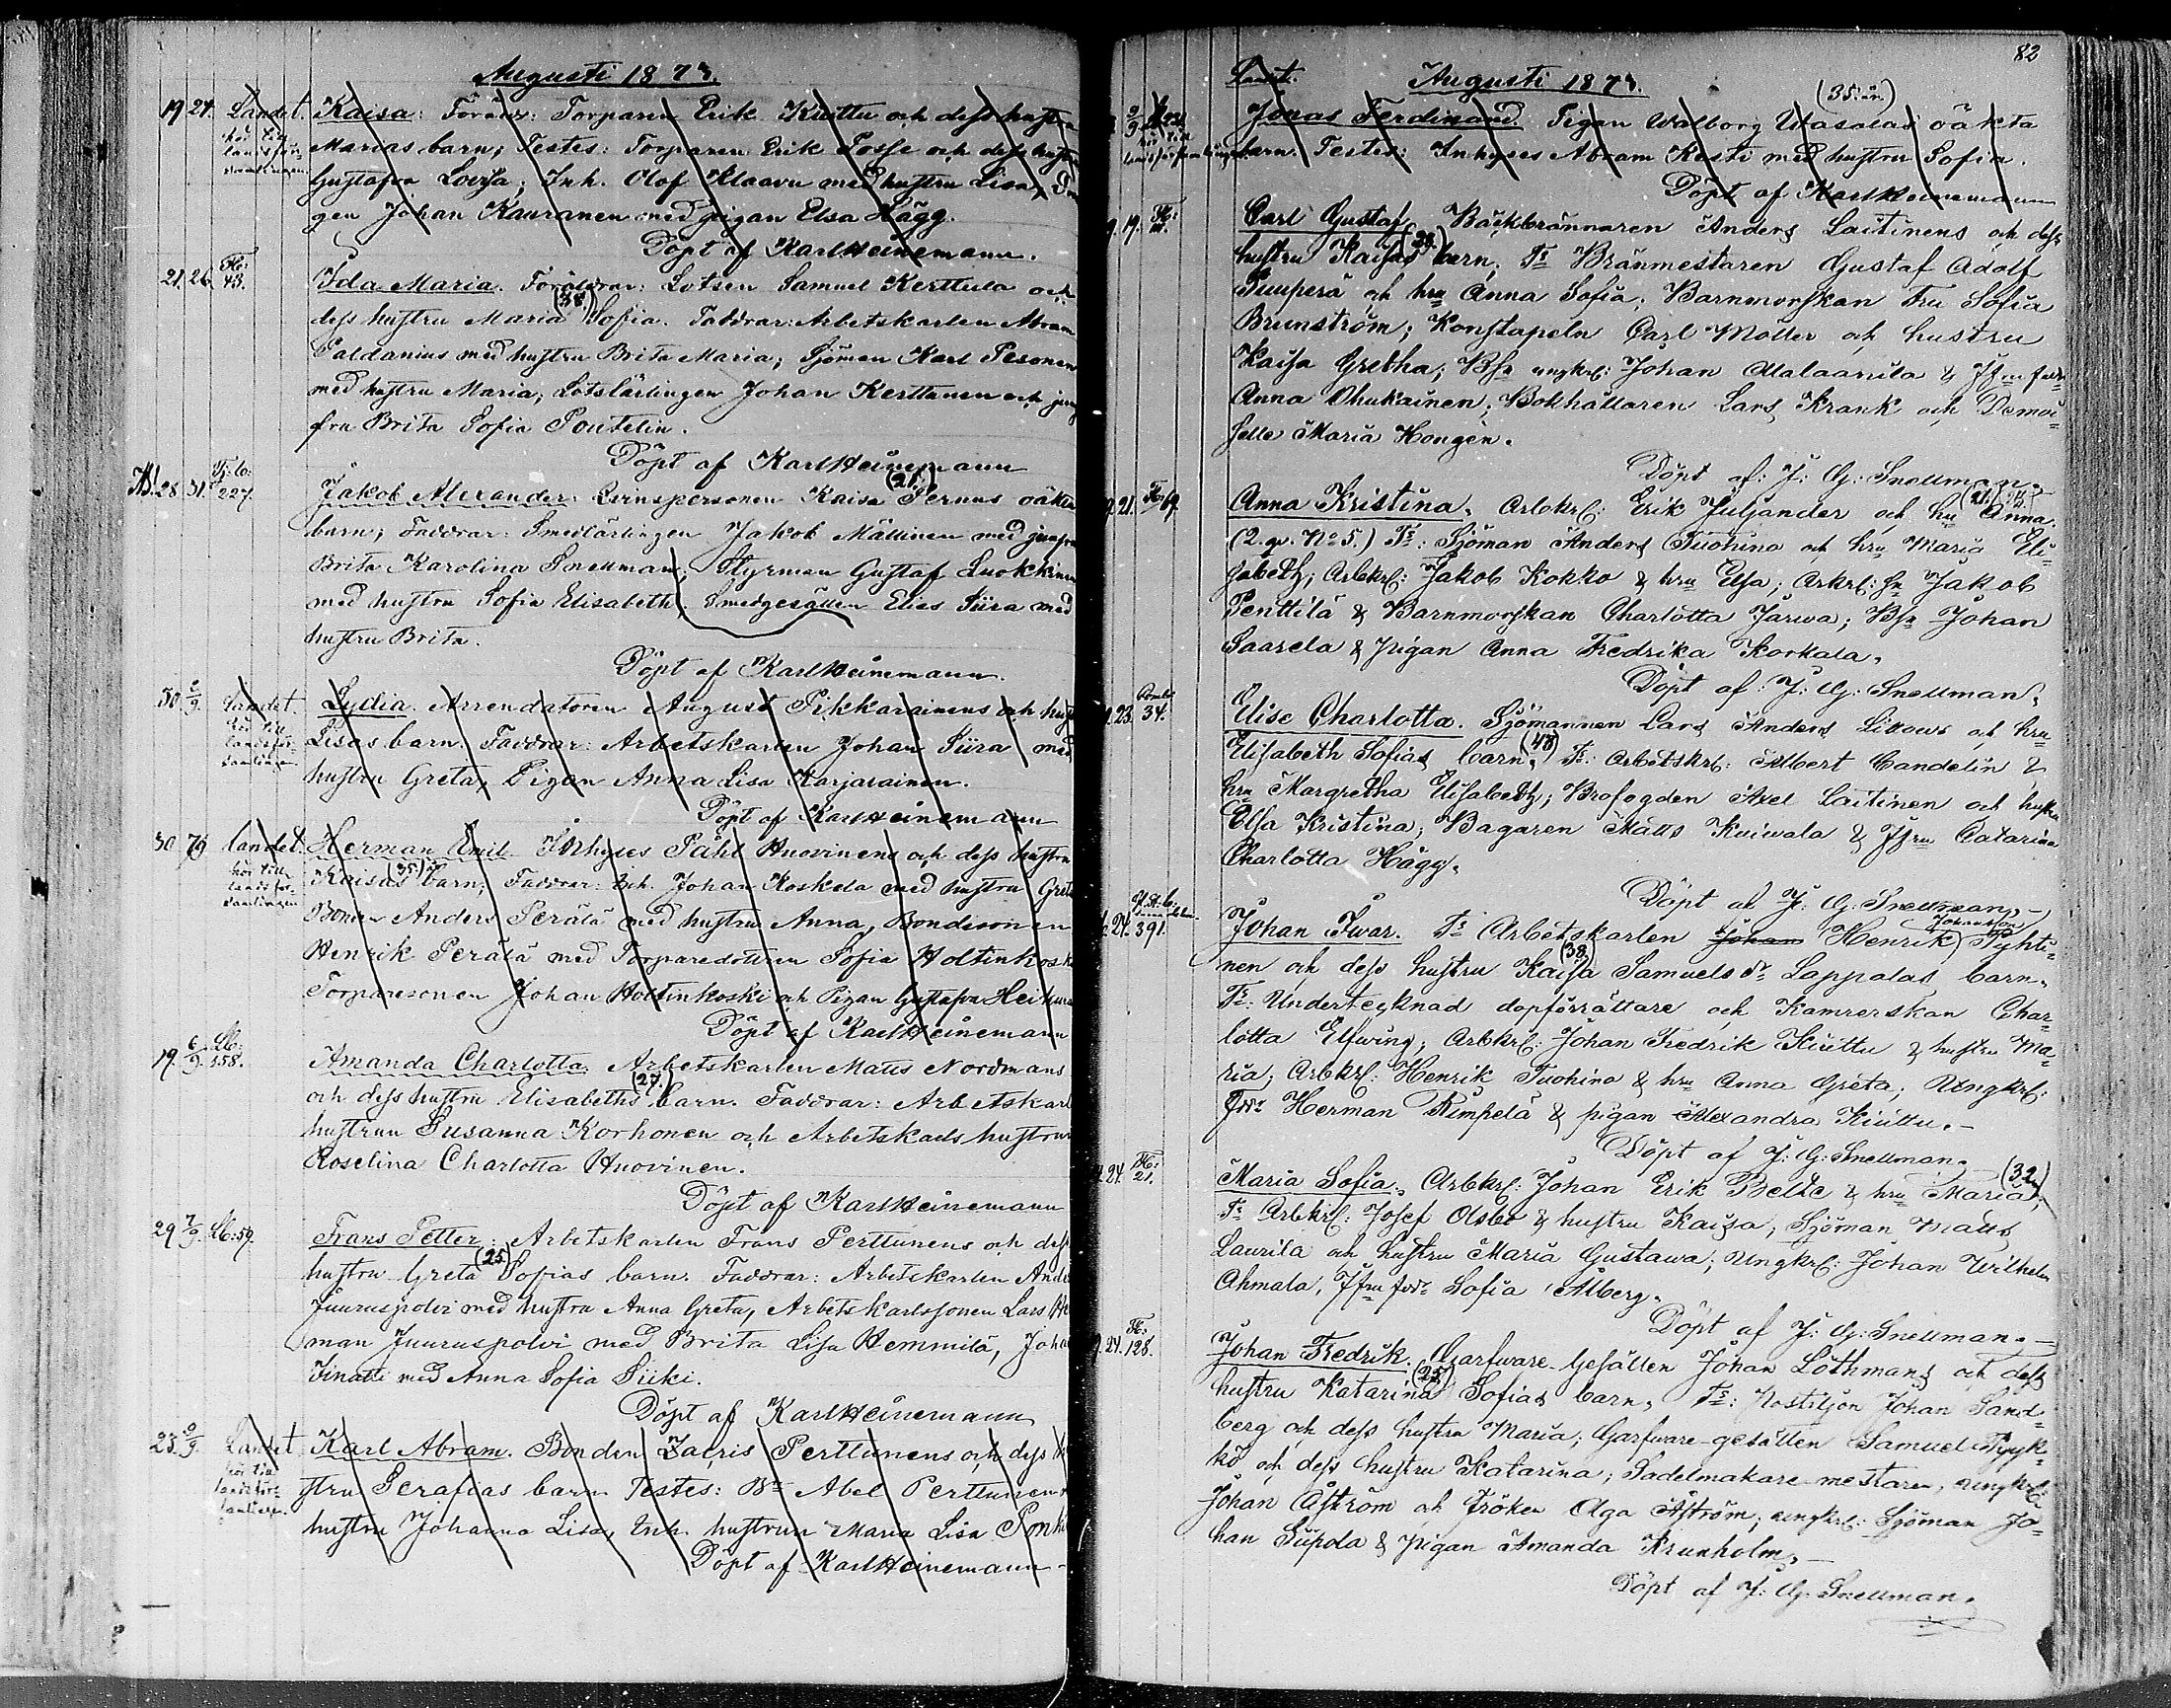 Augusti 1873.
19. 24. Landet. Kaisa: Föräldr: Torparen Erik Kiuttu och dess hustru
hör till landsför-samlingen Marias barn; Testes: Torparen Erik Posse och dess hustru
Gustafva Lovisa; Inh. Olof Klaavu med hustru Lisa, Drän
gen Johan Kauranen med pigan Elsa Hägg.
Döpt af Karl Heinemann.
21. 26. 43. Ida Maria. Föräldrar: Lotsen Samuel Kerttula och
dess hustru Maria (38) Sofia. Faddrar: Arbetskarlen Abram
Paldanius med hustru Brita Maria; Sjöman Karl Pesonen
med hustru Maria, Lotslärlingen Johan Kerttunen och jung
fru Brita Sofia Poutelin.
Döpt af Karl Heinemann
28. 31. 227. Jakob Alexander. Qvinspersonen Kaisa (21) Pernus oäkta
barn; Faddrar: Smedlärlingen Jakob Mällinen med jungfru
Brita Karolina Snellman; Styrman Gustaf Luokkinen
med hustru Sofia Elisabeth, Smedgesällen Elias Siira med
hustru Brita.
Döpt af Karl Heinemann.
30. 2/9. Landet. Lydia. Arrendatoren August Pikkarainens och hust
hör till landsför-samlingen Lisas barn. Faddrar: Arbetskarlen Johan Siira med
hustru Greta, Pigan Anna Lisa Karjalainen.
Döpt af Karl Heinemann
30. 7/9 Landet. Herman Emil. Inhyses Påhl Huovinens och dess hustru
hör till landsför-samlingen Kaisas (35) barn; Faddrar: Inh. Johan Koskela med hustru Greta
Bonden Anders Perälä med hustru Anna, Bondesonen
Henrik Perälä med Torparedottren Sofia Holtinkoski
Torparesonen Johan Holtinkoski och Pigan Gustafva Heikura
Döpt af Karl Heinemann
19. 6/9. 158. Amanda Charlotta. Arbetskarlen Matts Nordmans
och dess hustru Elisabeths (27.) barn. Faddrar: Arbetskarls
hustrun Susanna Korhonen och Arbetskarls hustrun
Roselina Charlotta Huovinen.
Döpt af Karl Heinemann
29 7/9. 59. Frans Petter: Arbetskarlen Frans Perttunens och dess
hustru Greta (25) Sofias barn. Faddrar: Arbetskarlen Ande
Juuruspolvi med hustru Anna Greta, Arbetskarlssonen Lars He
man Juuruspolvi med Brita Lisa Hemmilä, Joha
Vinatti med Anna Sofia Siiki.
Döpt af Karl Heinemann
23. 9. Landet Karl Abram. Bonden Zacris Perttunens och dess hu
hör till landsför-samlingen stru Serafias barn Testes: Bn Abel Perttunen
hustru Johanna Lisa, Inh. hustrun Maria Lisa
Döpt af Karl Heinemann -
82
Landt. Augusti 1873.
Jonas Ferdinand. Pigan Walborg Wasalas (35. år) oäkta
hör till landsförsamlingen barn. Testes: Inhyses Abram Kesti med hustru Sofia.
Döpt af Karl Heinemann
19. Carl Gustaf, Bäckbrännaren Anders Laitinens och dess
hustru Kaisas (29.) barn; Ts Brännmestaren Gustaf Adolf
Puuperä och hru Anna Sofia; Barnmorskan Fru Sofia
Brunström; Konstapeln Carl Möller och hustru
Kaisa Gretha; Bsn ungkrl: Johan Alalaarila & Jfrun fwdr
Anna Ohukainen; Bokhållaren Lars Krank och Demoi-
selle Maria Hongèn.
Döpt af: J: G: Snellman.
21. 69. Anna Kristina. Arbkrl: Erik Juljander och hru Anna. (21.)
(2. gr. No 5.) Ts: Sjöman Anders Tuohino och hru Maria Eli-
sabeth; Arbkrl: Jakob Kokko & hru Elsa; Arkrl: sn Jakob
Penttilä & Barnmorskan Charlotta Järwa; Bsn Johan
Saarela & pigan Anna Fredrika Korkala.
Döpt af: J: G: Snellman.
23. 34. Elise Charlotta. Sjömannen Lars Anders Likows och hru
Elisabeth Sofias barn. (43) Ts: Arbetskrl: Albert Candelin &
hru Margretha Elisabeth; Brofogden Axel Laitinen och hustru
Elsa Kristina; Bagaren Matts Kaiwala & Jfru Catarina
Charlotta Hägg.
Döpt af J: G: Snellman. -
24. 391. Johan Iwar. Ts Arbetskarlen Johan Henrik Johansson Tyhti-
nen och dess hustru Kaisa (38) Samuels dr Lappalas barn.
Ts. Undertecknad dopförrättare och Kamrerskan Char-
lotta Elfwing; Arbkrl: Johan Fredrik Kiuttu & hustru Ma-
ria; Arbkrl: Henrik Tuohino & hru Anna Greta; Ungkrl:
fwdr Herman Kimpelä & pigan Alexandra Kiuttu. -
Döpt af J: G: Snellman. -
24. 21. Maria Sofia. Arbkrl: Johan Erik Belle & hru Maria, (32)
Ts Arbkrl: Josef Olsbo & hustru Kaisa; Sjöman Matts
Laurila och hustru Maria Gustawa; Ungkrl: Johan Wilhelm
Ahmala, Jfru fwdr Sofia Alberg.
Döpt af J: G: Snellman. -
24. 128. Johan Fredrik. Garfware-Gesällen Johan Löthmans och dess
hustru Katarina (25) Sofias barn, Ts: Postiljon Johan Sand-
berg och dess hustru Maria; Garfware-gesällen Samuel Pyyk-
kö och dess hustru Katarina; Sadelmakare-mestaren, ungkrl:
Johan Åström och Fröken Olga Åström; ungkrl: Sjöman Jo-
han Siipola & pigan Amanda Krunholm. -
Döpt af J: G: Snellman.